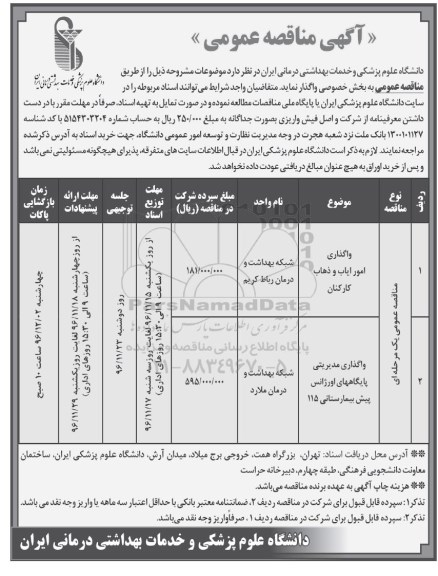 « آگهی مناقصه عمومی »
دانشگاه علوم پزشکی و خدمات بهداشتی درمانی ایران
دانشگاه علوم پزشکی و خدمات بهداشتی درمانی ایران در نظر دارد موضوعات مشروحه ذیل را از طریق
مناقصه عمومی به بخش خصوصی واگذار نماید. متقاضیان واجد شرایط می‌توانند اسناد مربوطه را در
سایت دانشگاه علوم پزشکی ایران یا پایگاه ملی مناقصات مطالعه نموده و در صورت تمایل به تهیه اسناد، صرفاً در مهلت مقرر با در دست
داشتن معرفینامه از شرکت و اصل فیش واریزی بصورت جداگانه به مبلغ ۲۵۰/۰۰۰ ریال به حساب شماره ۵۱۵۴۳۰۳۲۰۴ با کد شناسه
۱۳۰۰۱۰۱۱۲۷ بانک ملت نزد شعبه هجرت در وجه مدیریت نظارت و توسعه امور عمومی دانشگاه، جهت خرید اسناد به آدرس ذکر شده
مراجعه نمایند. لازم به ذکر است دانشگاه علوم پزشکی ایران در قبال اطلاعات سایت های متفرقه، پذیرای هیچگونه مسئولیتی نمی باشد
و پس از خرید اوراق به هیچ عنوان مبالغ دریافتی عودت داده نخواهد شد.
ردیف
نوع مناقصه
موضوع
نام واحد
مبلغ سپرده شرکت در مناقصه (ریال)
مهلت توزیع اسناد
جلسه توجیهی
مهلت ارائه پیشنهادات
زمان بازگشایی پاکات
۱
مناقصه عمومی یک مرحله ای
واگذاری
امور ایاب و ذهاب
کارکنان
شبکه بهداشت و
درمان رباط کریم
۱۸۱/۰۰۰/۰۰۰
از روز یکشنبه ۹۶/۱۱/۱۵ لغایت روز سه شنبه ۹۶/۱۱/۱۷
(ساعت ۹ الی ۱۵:۳۰ روزهای اداری)
روز دوشنبه ۹۶/۱۱/۲۳
از روز چهارشنبه ۹۶/۱۱/۱۸ لغایت روز یکشنبه ۹۶/۱۱/۲۹
(ساعت ۹ الی ۱۵:۳۰ روزهای اداری)
چهارشنبه ۹۶/۱۲/۰۲ ساعت ۱۰ صبح
۲
واگذاری مدیریتی
پایگاههای اورژانس
پیش بیمارستانی ۱۱۵
شبکه بهداشت و
درمان ملارد
۵۹۵/۰۰۰/۰۰۰
ParsNamadData
پایگاه اطلاع رسانی مناقصه و مزایده
۰۲۱-۸۸۳۴۹۶۷۰-۵
** آدرس محل دریافت اسناد: تهران، بزرگراه همت، خروجی برج میلاد، میدان آرش، دانشگاه علوم پزشکی ایران، ساختمان
معاونت دانشجویی فرهنگی، طبقه چهارم، دبیرخانه حراست
** هزینه چاپ آگهی به عهده برنده مناقصه می‌باشد.
تذکر۱: سپرده قابل قبول برای شرکت در مناقصه ردیف ۲، ضمانتنامه معتبر بانکی با حداقل اعتبار سه ماهه یا واریز وجه نقد می باشد.
تذکر۲: سپرده قابل قبول برای شرکت در مناقصه ردیف ۱، صرفاً واریز وجه نقد می‌باشد.
دانشگاه علوم پزشکی و خدمات بهداشتی درمانی ایران